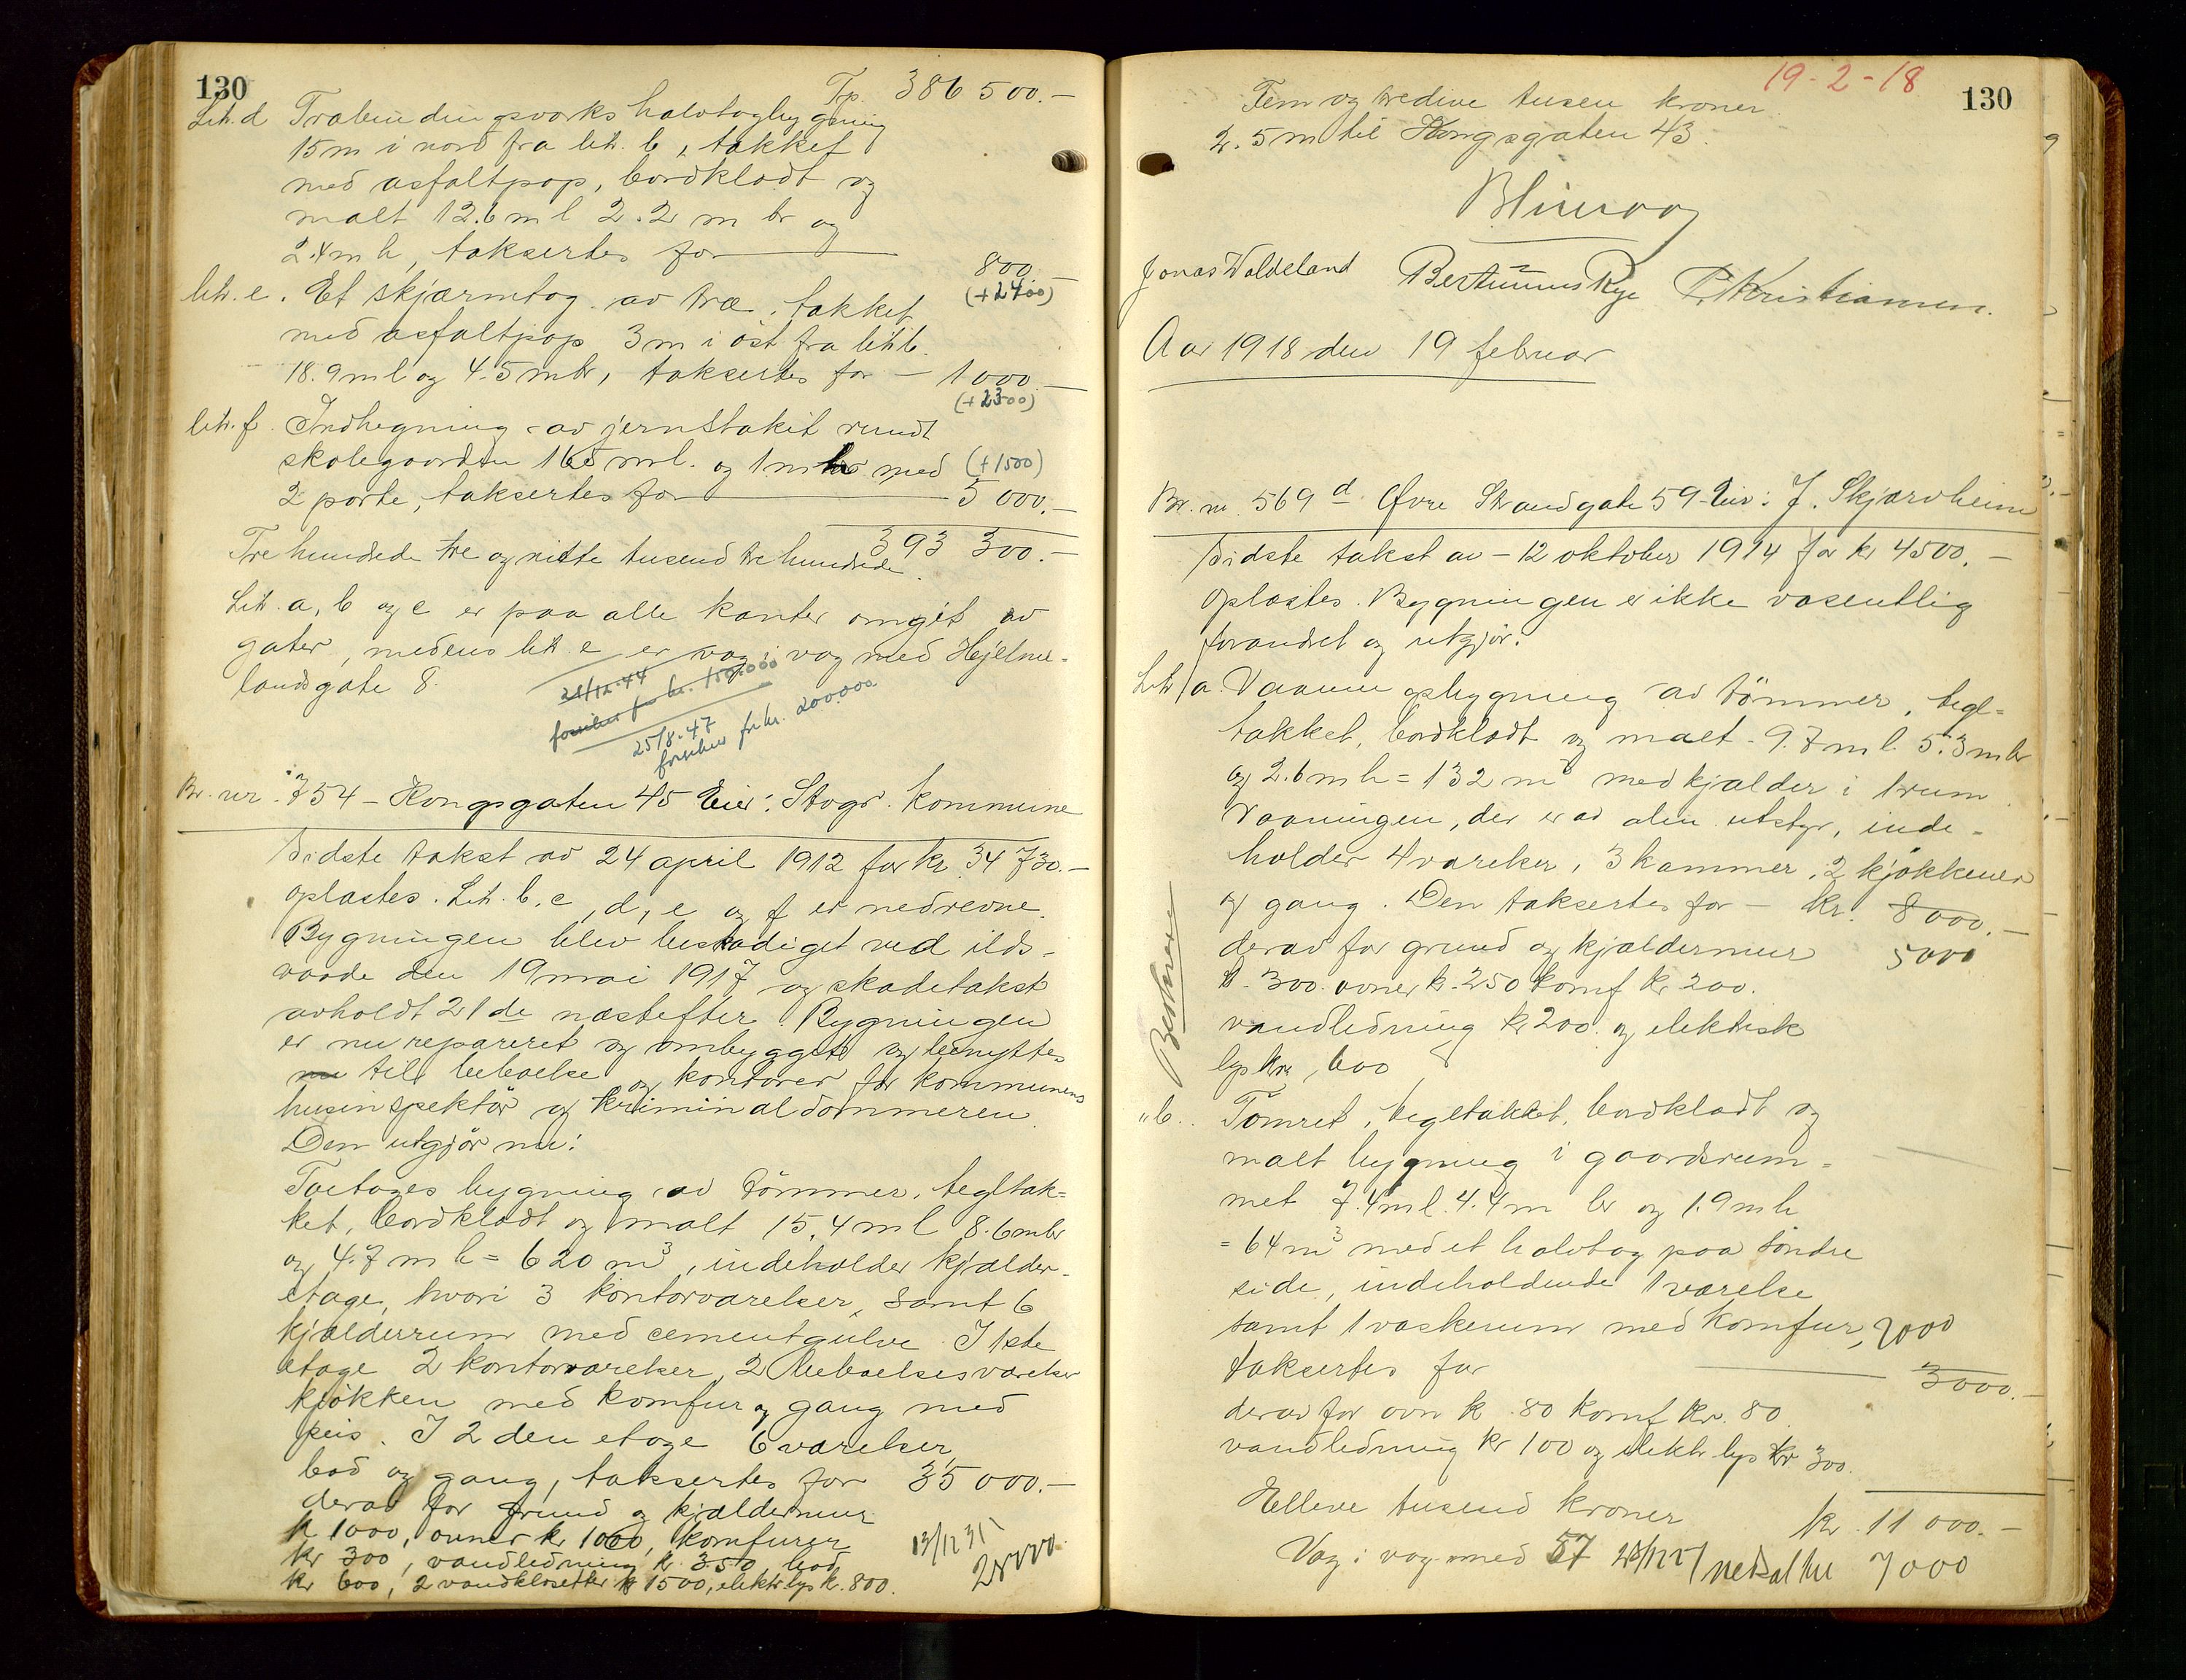 130
Tp. 386 500.-
Lit. d Træbindingsverks halvtagbygning
15 m i nord fra lit. b, takket
med asfaltpap, bordklædt og
malt 12.6 m l 2.2 m br og
2.4 m h, taksertes for 800.-
(+2400)
lit. e. Et skjærmtag av træ, takket
med asfaltpap 3 m i øst fra lit b.
18.9 m l og 4.5 m br, taksertes for - 1 000.-
(+2300)
lit. f. Indhegning av jernstakit rundt
skolegaarden 165 m l. og 1 m h med (+1500)
2 porte, taksertes for 5 000.-
393 300.-
Tre hundrede tre og nitti tusend tre hundrede.
Lit. a, b og c er paa alle kanter omgit av
gater, medens lit. e er væg i væg med Hjelme-
landsgate 8.
21/12-44
forsikret for kr. 150.000
25/8-47
forsikres for kr. 200.000
Br. nr. 754 - Kongsgaten 45 Eier: Stvgr. kommune
Sidste takst av 24 april 1912 for kr. 34 730.-
oplæstes. Lit. b, c, d, e og f er nedrevne.
Bygningen blev beskadiget ved ilds-
vaade den 19 mai 1917 og skadetakst
avholdt 21de næstefter. Bygningen
er nu reparert og ombygget og benyttes
nu til beboelse og kontorer for kommunens
husinspektör og kriminaldommeren.
Den utgjör nu:
Toetages bygning av tömmer, tegltak-
ket, bordklædt og malt 15,4 m l 8.6 m br
og 4.7 m h = 620 m³, indeholder kjælder-
etage, hvori 3 kontorværelser, samt 6
kjælderrum med cementgulve. I 1ste
etage 2 kontorværelser, 2 beboelsesværelser
kjøkken med komfur og gang med
peis. I 2den etage 6 værelser,
bad og gang, taksertes for 35 000.-
derav for grund og kjældermur
kr 1000, ovner kr 1000, komfurer
kr 300, vandledning kr 350, bad
kr 600, 2 vandklosetter kr 1500, elektr lys kr. 800.
13/12 35
28000
19-2-18
130
Fem og tredive tusen kroner.
2.5 m til Kongsgaten 43.
Jonas Voldeland Bertinius Rye P. Kristiansen.
Aar 1918 den 19 februar
Br. nr. 569 d. Øvre Strandgate 59 - Eier: J. Skjærvheim
Sidste takst av - 12 oktober 1914 for kr 4500.-
oplæstes. Bygningen er ikke væsentlig
forandret og utgjør:
Lit a. Vaaningsbygning av tömmer, tegl-
takket, bordklædt og malt - 9.7 m l. 5.3 m br
og 2.6 m h = 132 m³ med kjælder i 1 rum.
Vaaningen, der er av alm. utstyr, inde-
holder 4 værelser, 3 kammer, 2 kjøkkener
og gang. Den taksertes for - kr. 8000.-
derav for grund og kjældermur 5000
kr. 300. ovner kr. 250 komf kr 200.
vandledning kr 200. og elektrisk
lys kr, 600
"b. Tömret, tegltakket, bordklædt og
malt bygning i gaardsrum-
met 7.4 m l. 4.4 m br og 1.9 m h
= 64 m³ med et halvtag paa söndre
side, indeholdende 1 værelse
samt 1 vaskerum med komfur, 2000
taksertes for 3000.-
derav for ovn kr. 80 komf kr. 80
vandledning kr 100 og elektr lys kr 300.
Elleve tusend kroner kr. 11 000.-
Væg i væg med 57 nedsat til 7000